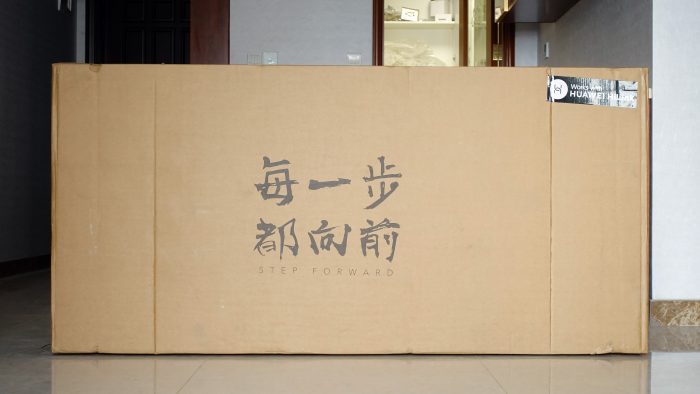 Works with
HUAWEI HiLink
每一步
都向前
STEP FORWARD